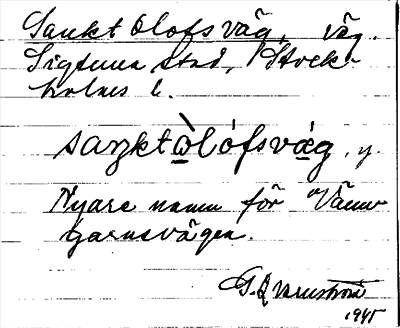 Sankt Olofsväg, väg.
Sigtuna stad, Stock-
holms l.
saŋktòlófsvä́g, y.
Nyare namn för Vänn-
garnsvägen.
G. Qvarnström
1945